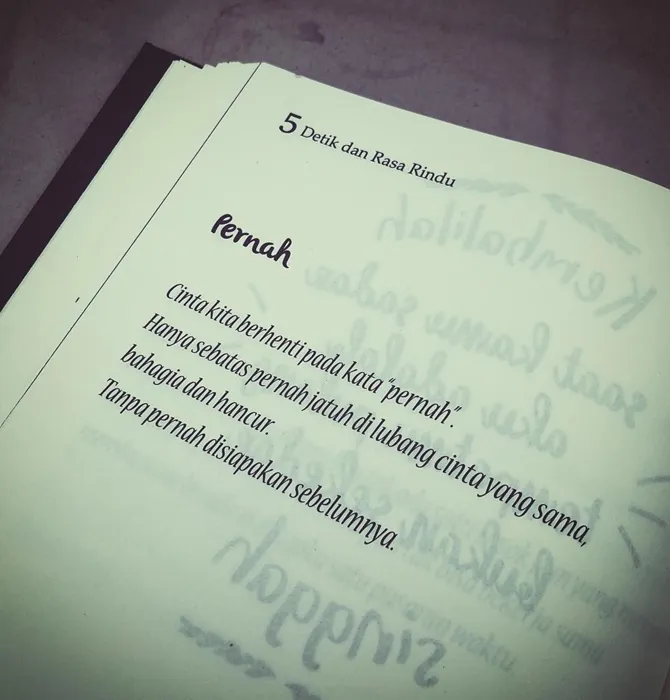 5 Detik dan Rasa Rindu
Pernah
Cinta kita berhenti pada kata “pernah”.
Hanya sebatas pernah jatuh di lubang cinta yang sama,
bahagia dan hancur.
Tanpa pernah disiapakan sebelumnya.